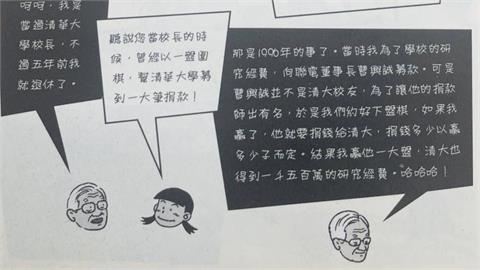 呵呵，我是
當過清華大
學校長，不
過五年前我
就退休了。
聽說您當校長的時
候，曾經以一盤圍
棋，幫清華大學募
到一大筆捐款！
那是1996年的事了。當時我為了學校的研
究經費，向聯電董事長曹興誠募款。可是
曹興誠並不是清大校友，為了讓他的捐款
師出有名，於是我們約好下盤棋，如果我
贏了，他就要捐錢給清大，捐錢多少以贏
多少子而定。結果我贏他一大盤，清大也
得到一千五百萬的研究經費。哈哈哈！